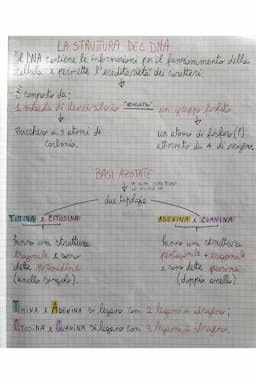 LA STRUTTURA DEL DNA
Il DNA contiene le informazioni per il funzionamento della
cellula e permette l'ereditarietà dei caratteri.
È composto da:
1 molecola di deossiribosio
un gruppo fosfato
Zucchero a 5 atomi di
carbonio.
un atomo di fosforo (P)
attorniato da 4 di ossigeno.
BASI AZOTATE
due tipologie
TIMINA e CITOSINA
ADENINA e GUANINA
hanno una struttura
esagonale e sono
dette pirimidine
(anello singolo).
hanno una struttura
pentagonale + esagonale
e sono dette purine
(doppio anello).
TIMINA e ADENINA si legano con 2 legami a idrogeno;
CITOSINA e GUANINA si legano con 3 legami a idrogeno.